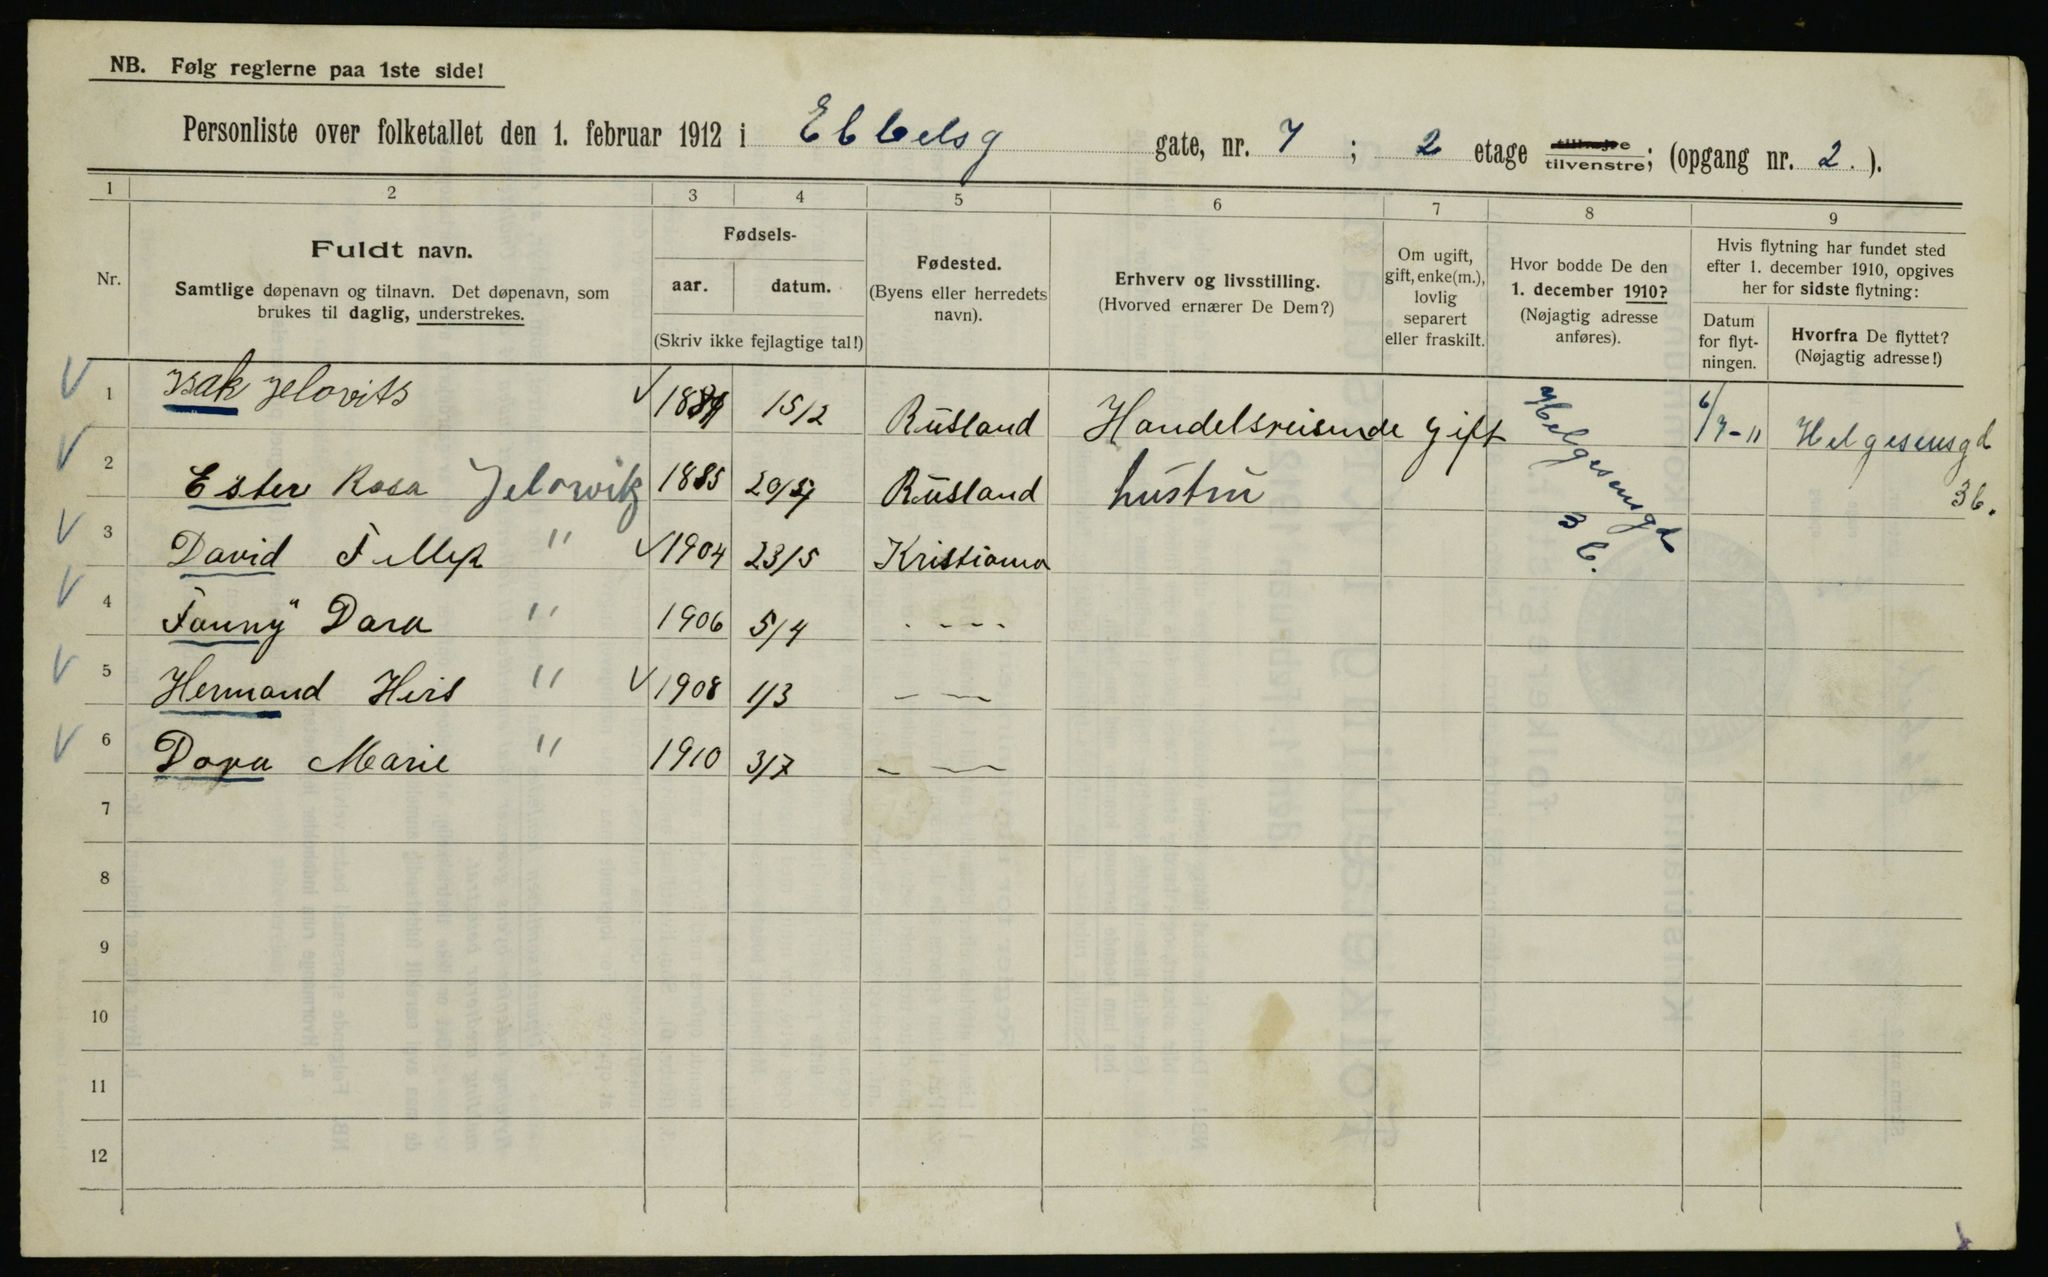 NB. Følg reglerne paa 1ste side!
Personliste over folketallet den 1. februar 1912 i Ebbelsg gate, nr. 7 ; 2 etage tilhøjre tilvenstre; (opgang nr. 2. ).
1 2 3 4 5 6 7 8 9
Nr.
Fuldt navn.
Samtlige døpenavn og tilnavn. Det døpenavn, som
brukes til daglig, understrekes.
Fødsels-
aar. datum.
(Skriv ikke fejlagtige tal!)
Fødested.
(Byens eller herredets
navn).
Erhverv og livsstilling.
(Hvorved ernærer De Dem?)
Om ugift,
gift, enke(m.),
lovlig
separert
eller fraskilt.
Hvor bodde De den
1. december 1910?
(Nøjagtig adresse
anføres).
Hvis flytning har fundet sted
efter 1. december 1910, opgives
her for sidste flytning:
Datum
for flyt-
ningen.
Hvorfra De flyttet?
(Nøjagtig adresse!)
1 Isak Jelovits 15/2 Rusland Handelsreisende gift Helgesensgd 3b. 6/7-11 Helgesensgd
2 Ester Rosa Jelowitz 1885 Rusland hustru 3b.
3 David " 1904 23/5 Kristiania
4 Fanny Dora " 1906 5/4 - - - -
5 Hermand Hirs " 1908 1/3 — —
6 Dora Marie " 1910 3/7 — —
7
8
9
10
11
12